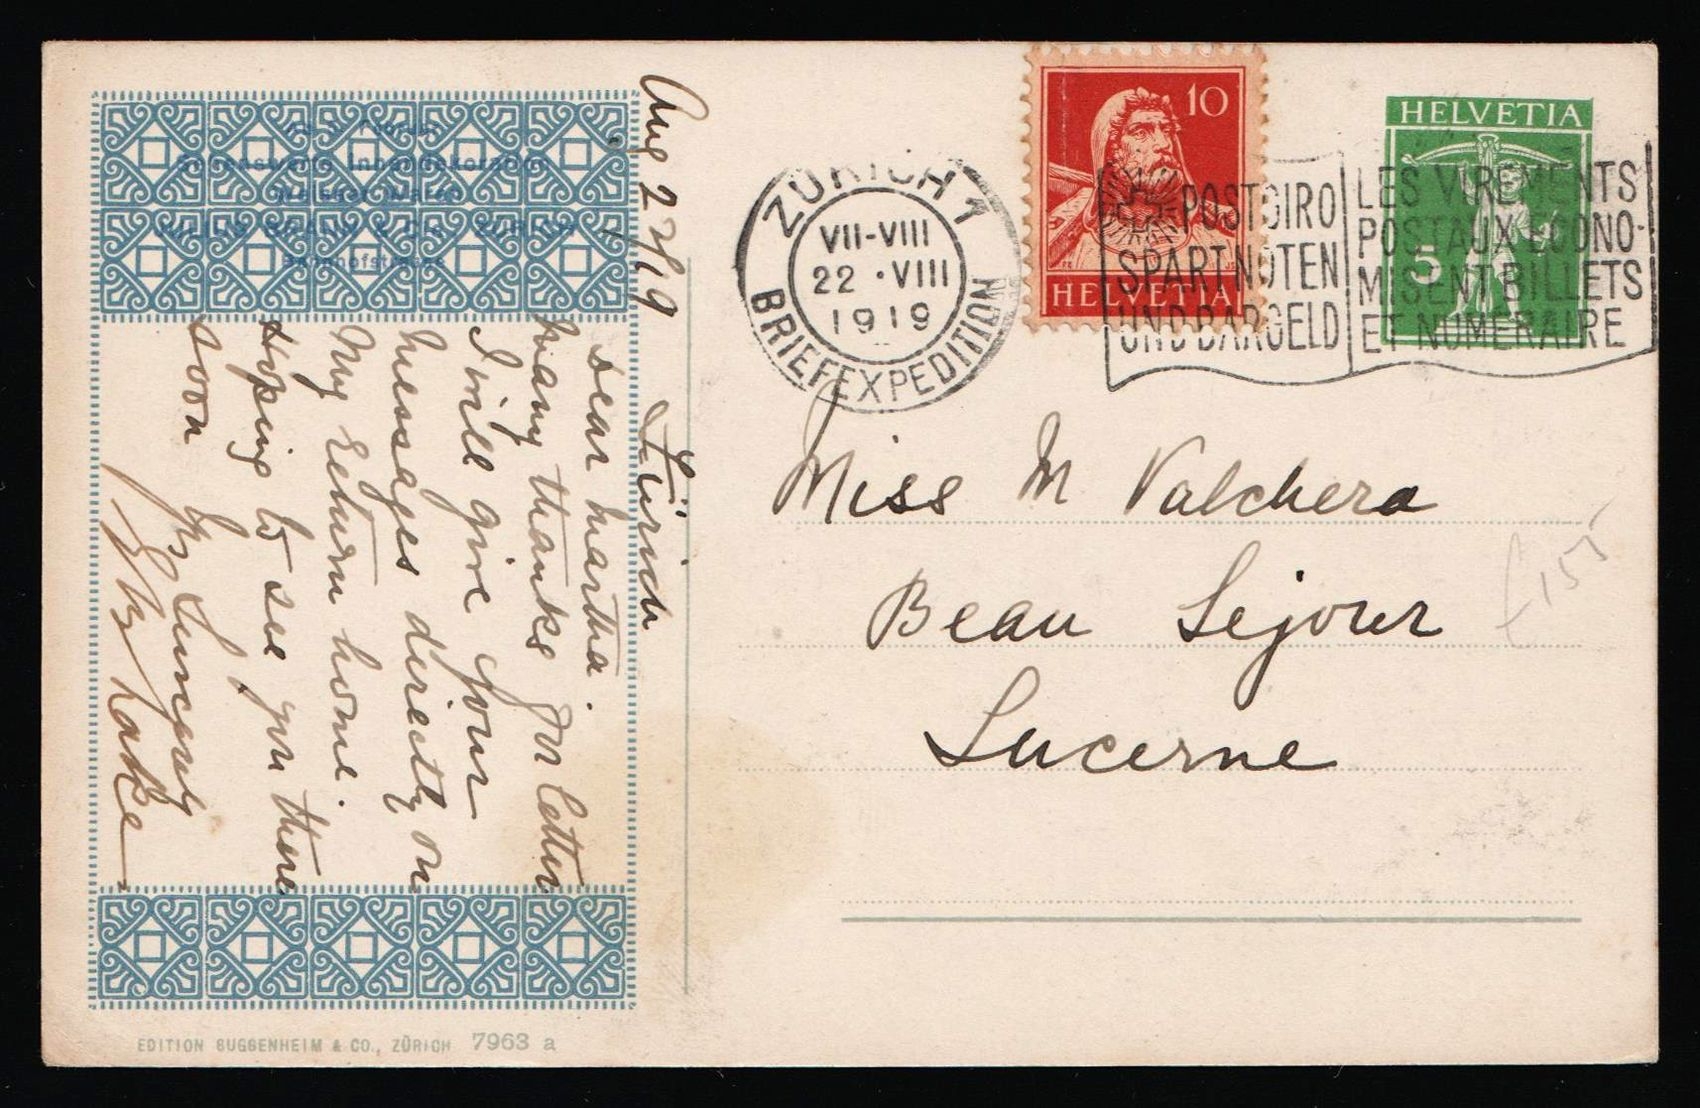 Sehenswerte Innendekoration
ZÜRICH 1
VII-VIII
22 · VIII
1919
BRIEFEXPEDITION
10
HELVETIA
POSTGIRO
SPART NOTEN
UND BARGELD
LES VIREMENTS
POSTAUX ECONO-
MISENT BILLETS
ET NUMERAIRE
HELVETIA
5
Aug 22/19 Zürich
Dear Martha.
Many thanks for letter
I will give your
messages directly on
My return home.
Hoping to see you there
soon
Yrs Sincerely
Lake
Miss M Valchera
Beau Sejour
Lucerne
£155
EDITION GUGGENHEIM & CO., ZÜRICH 7963 a